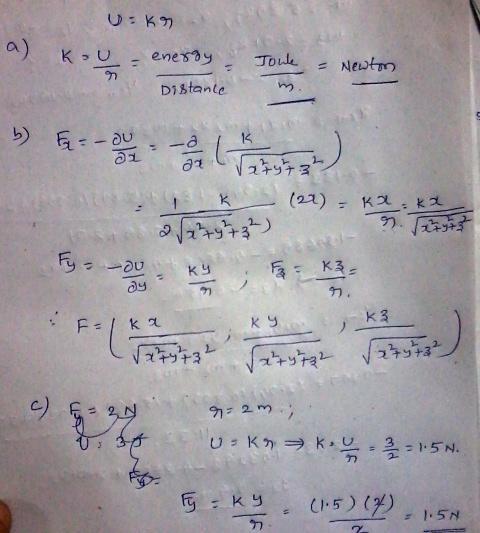 U = Kr
a) K = U/r = energy/Distance = Joule/m. = Newton
b) Fx = -∂U/∂x = -∂/∂x ( K/√x²+y²+z² )
= 1/2 K/√x²+y²+z²) (2x) = Kx/r. = Kx/√x²+y²+z²
Fy = -∂U/∂y = Ky/r ; Fz = Kz/r. =
∴ F = ( Kx/√x²+y²+z² , Ky/√x²+y²+z² , Kz/√x²+y²+z² )
c) Fy = 2N r = 2m. ;
U = 3J U = Kr ⇒ K = U/r = 3/2 = 1.5 N.
Fy = Ky/r = (1.5)(2)/2 = 1.5N